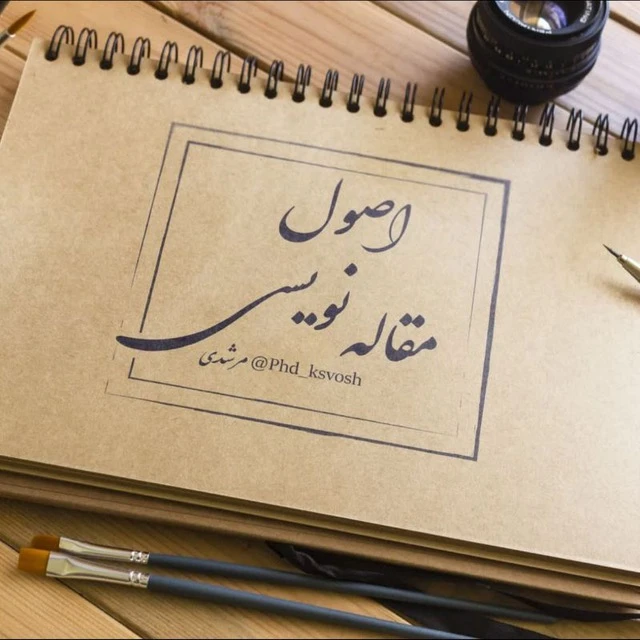 اصول
مقاله نویسی
مرشدی @Phd_ksvosh